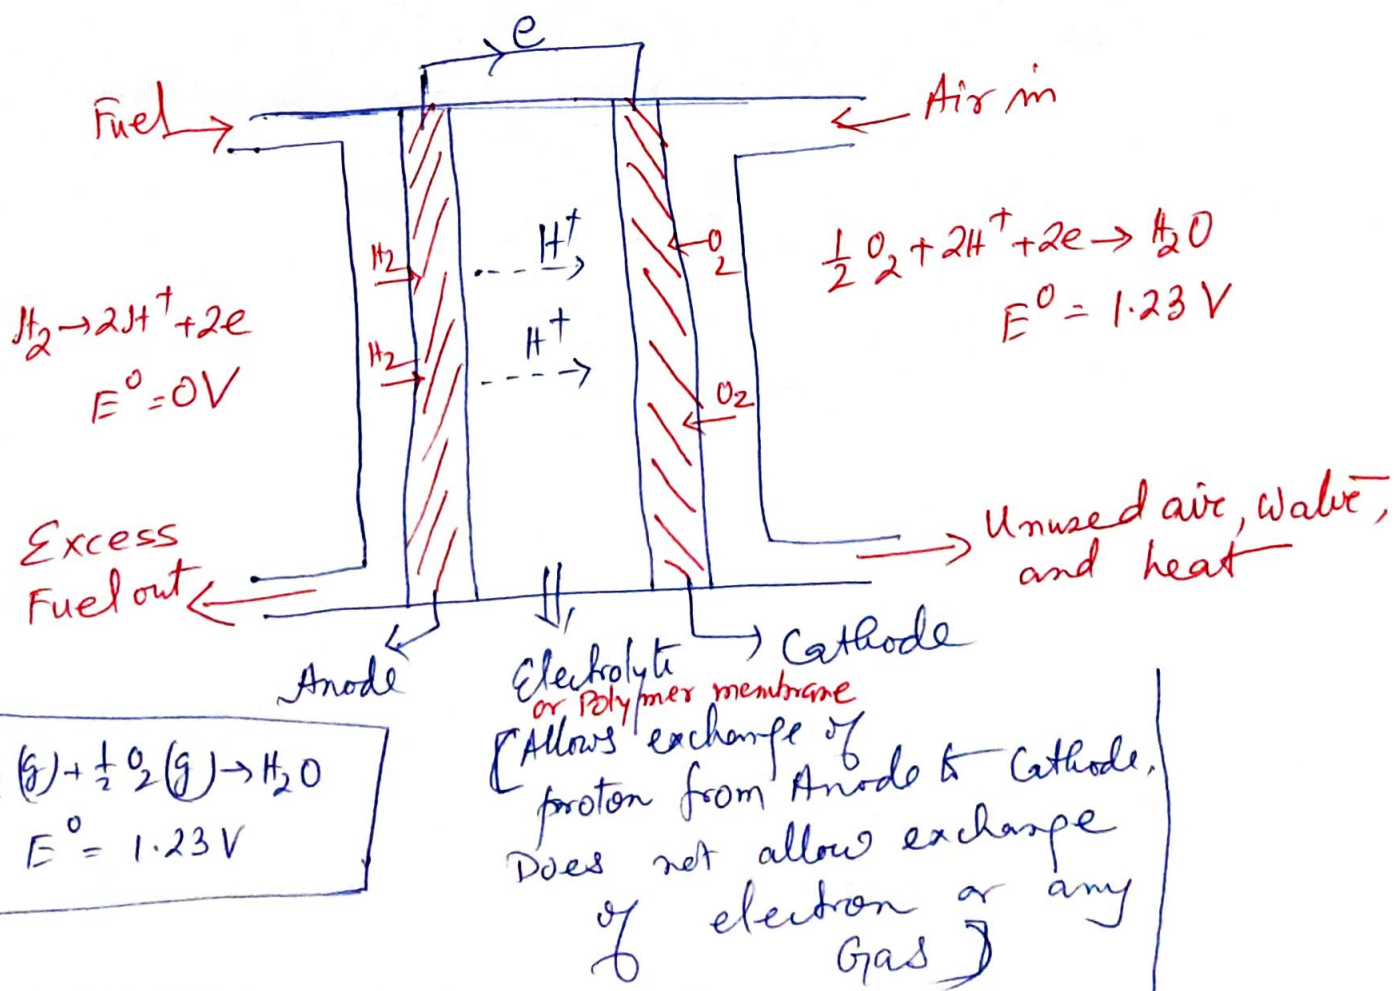 e
Fuel
Air in
H₂
H⁺
O₂
½ O₂ + 2H⁺ + 2e → H₂O
E⁰ = 1.23 V
H₂ → 2H⁺ + 2e
E⁰ = 0V
H₂
H⁺
O₂
Excess
Fuel out
Unused air, water,
and heat
Anode
Electrolyte
or Polymer membrane
Cathode
[Allows exchange of
proton from Anode to Cathode.
Does not allow exchange
of electron or any
Gas]
(g) + ½ O₂ (g) → H₂O
E⁰ = 1.23 V